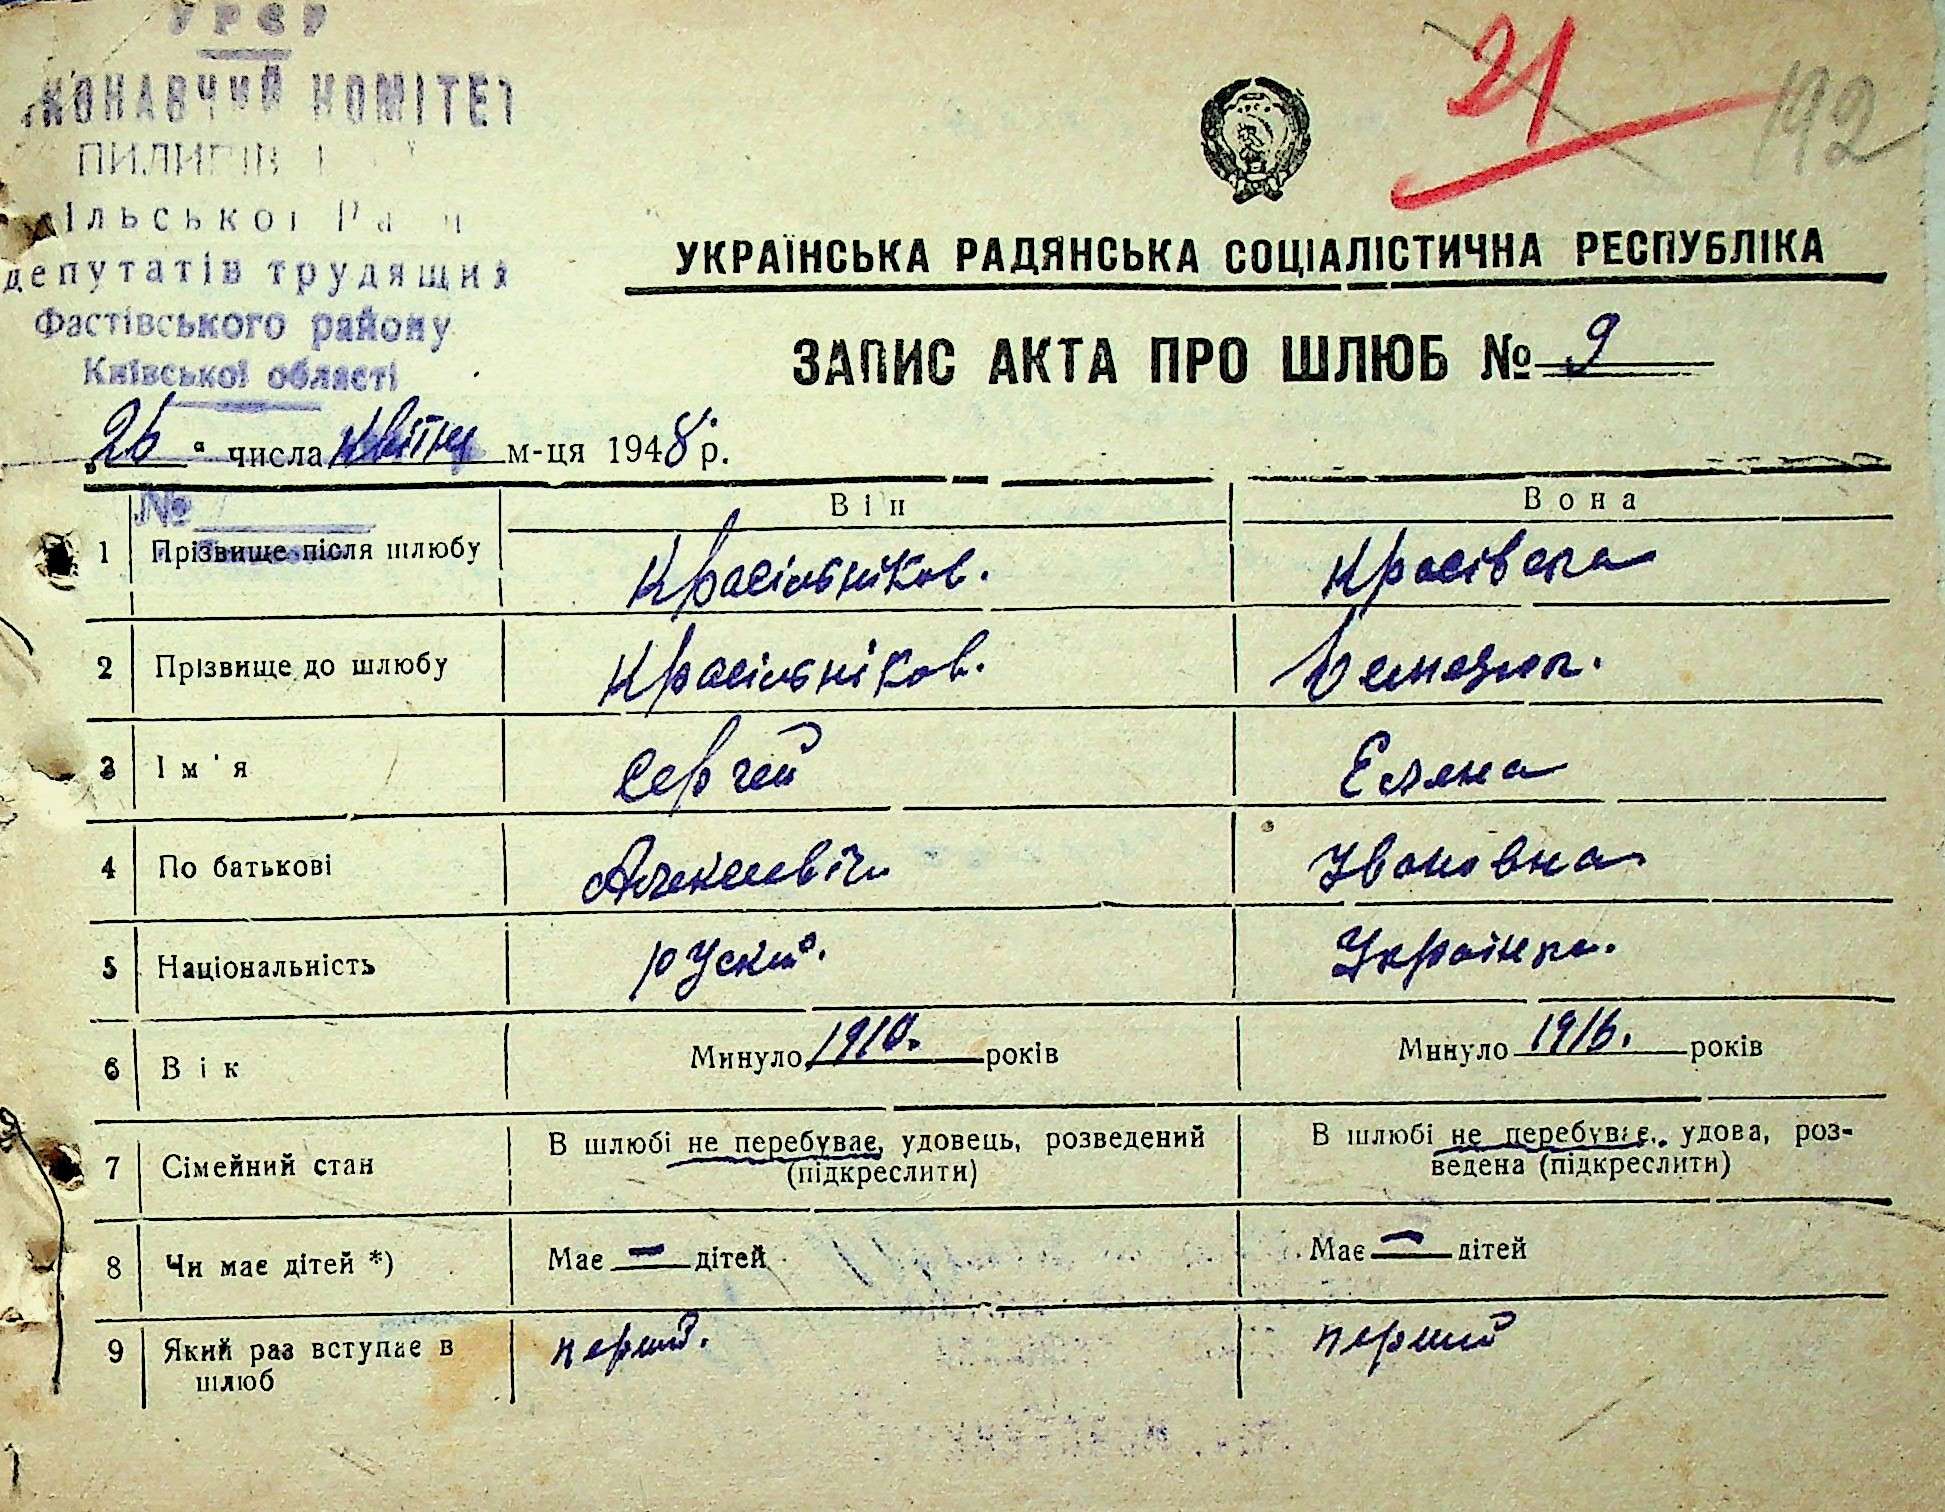 УРСР
КОНАВЧИЙ КОМІТЕТ
ільської
депутатів трудящих
Фастівського району
Київської області
21
192
УКРАЇНСЬКА РАДЯНСЬКА СОЦІАЛІСТИЧНА РЕСПУБЛІКА
ЗАПИС АКТА ПРО ШЛЮБ № 9
„26“ числа квітня м-ця 1948 р.
№
Він Вона
1 Прізвище після шлюбу Красільніков.
2 Прізвище до шлюбу Красільніков.
3 Ім'я Сергей Елена
4 По батькові Алексеевіч Івановна
5 Національність руский. Українка.
6 Вік Минуло 1910. років Минуло 1916. років
7 Сімейний стан В шлюбі не перебуває, удовець, розведений (підкреслити) В шлюбі не перебуває, удова, роз-
ведена (підкреслити)
8 Чи має дітей *) Має — дітей Має — дітей
9 Який раз вступає в шлюб перший. перший